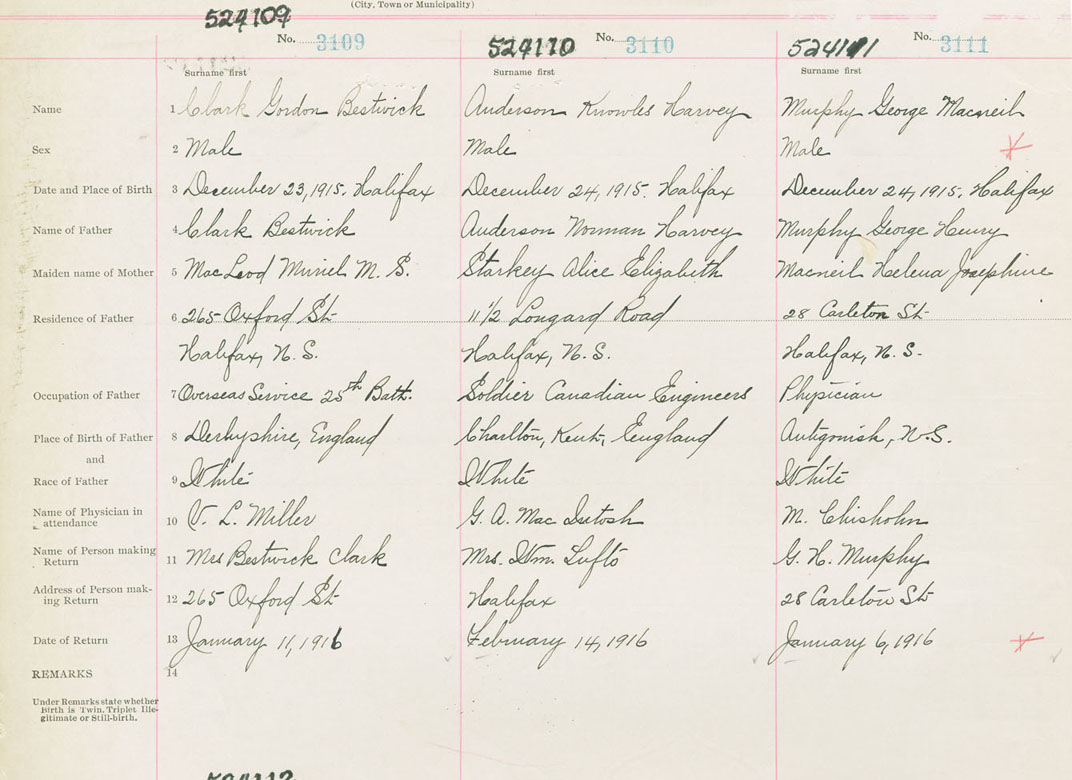 (City, Town or Municipality)
524109 No. 3109 524110 No. 3110 524111 No. 3111
Surname first Surname first Surname first
Name 1 Clark Gordon Bestwick Anderson Knowles Harvey Murphy George Macneil
Sex 2 Male Male Male
Date and Place of Birth 3 December 23, 1915. Halifax December 24, 1915. Halifax December 24, 1915. Halifax
Name of Father 4 Clark Bestwick Anderson Norman Harvey Murphy George Henry
Maiden name of Mother 5 MacLeod Muriel M. S. Starkey Alice Elizabeth Macneil Helena Josephine
Residence of Father 6 265 Oxford St. 11 1/2 Longard Road 28 Carleton St.
Halifax, N.S. Halifax, N.S. Halifax, N.S.
Occupation of Father 7 Overseas Service 25th Batt. Soldier Canadian Engineers Physician
Place of Birth of Father 8 Derbyshire, England Charlton, Kent, England Antigonish, N.S.
and
Race of Father 9 White White White
Name of Physician in
attendance 10 V. L. Miller G. A. MacIntosh M. Chisholm
Name of Person making
Return 11 Mrs Bestwick Clark Mrs. Wm. G. H. Murphy
Address of Person mak-
ing Return 12 265 Oxford St. Halifax 28 Carleton St.
Date of Return 13 January 11, 1916 February 14, 1916 January 6, 1916
REMARKS 14
Under Remarks state whether
Birth is Twin. Triplet Ille-
gitimate or Still-birth.
524112